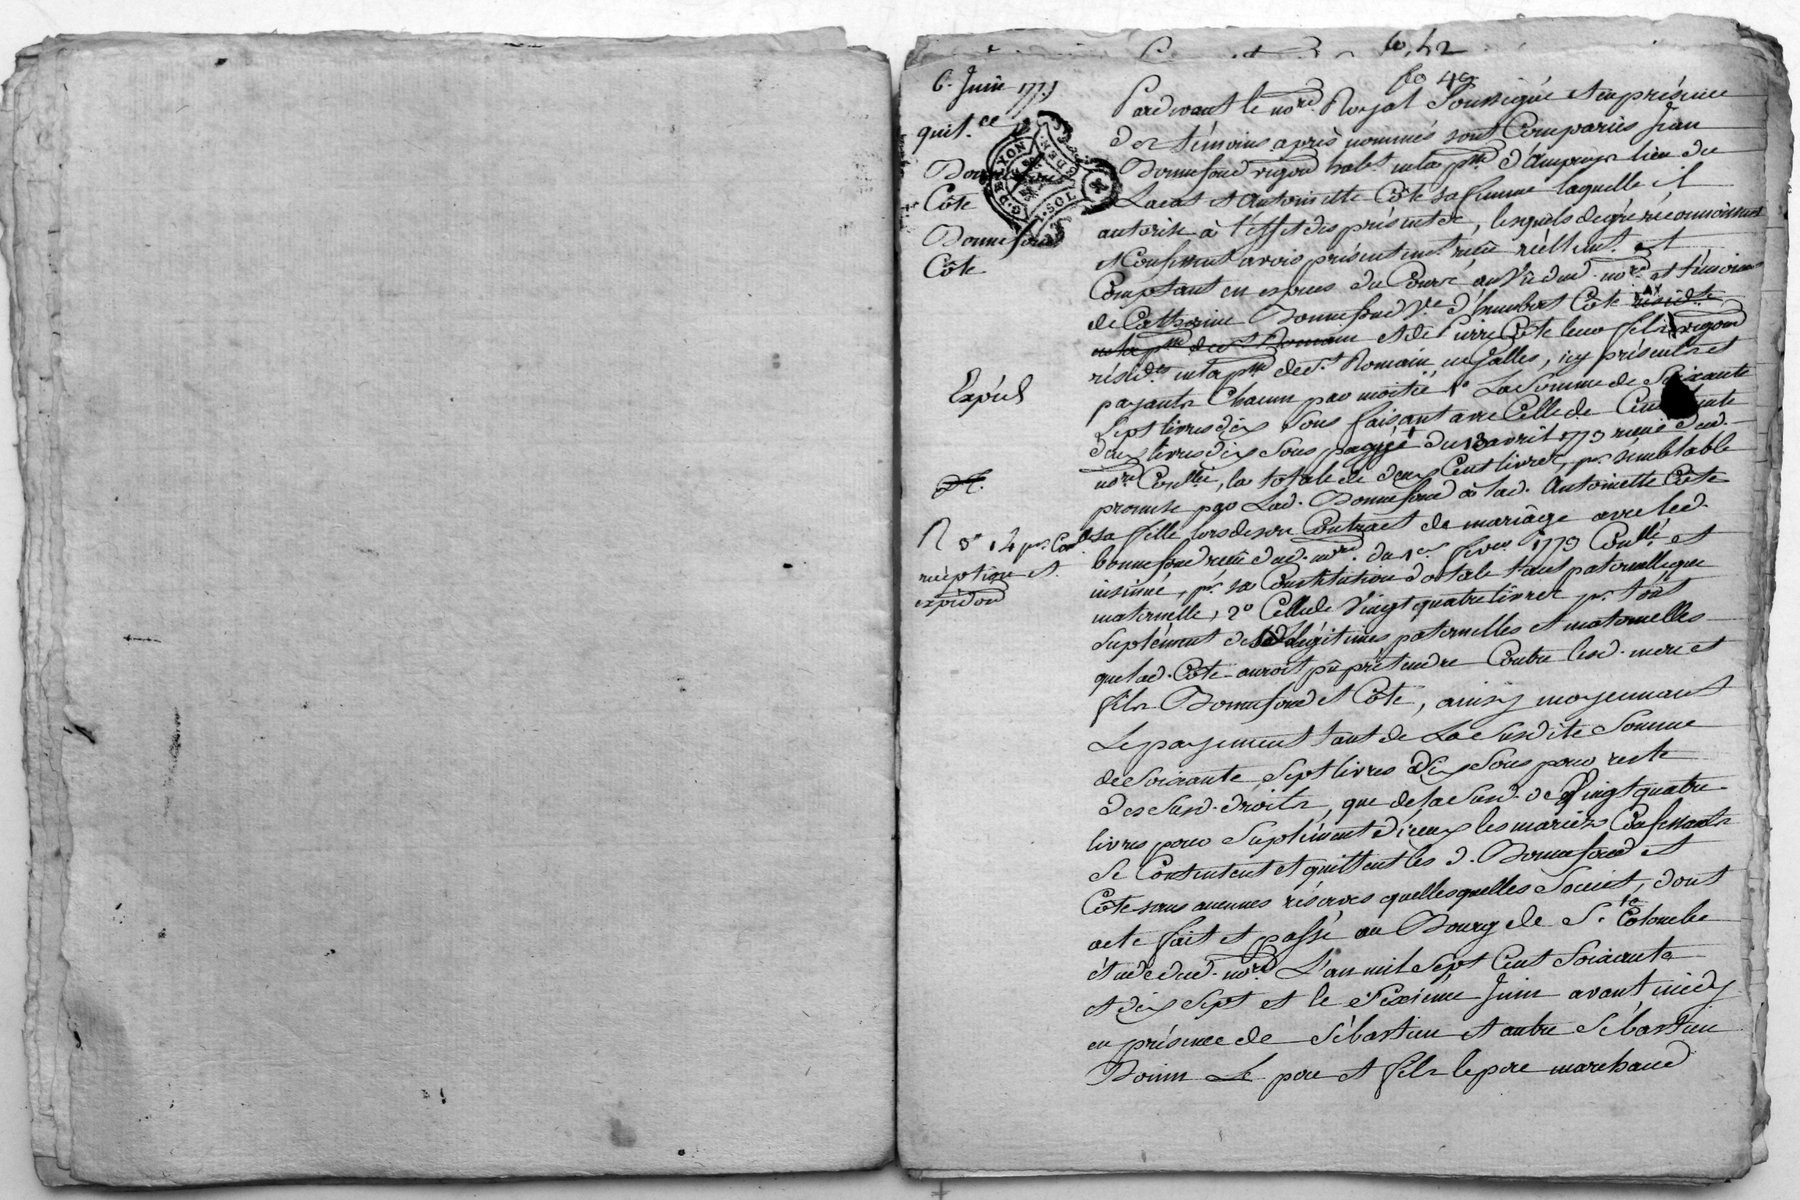 fo. 42
fo 49
6. Juin 1777
quit.ce
Bonnefond
Côte
Bonnefond
Côte
G. DE LYON
SOL
Expéd
R 3# 14 pr. Con
réception et
expédon
Pardevant le nore. Royal soussigné et en présence
des témoins après nommés sont Comparûs Jean
Bonnefond vigon habt. en la pse. d'Ampuys lieu de
Lacat et Antoinette Côte sa femme laquelle il
autorise à l'effet des présentes, lesquels de gré reconnoissent
et Confessent avoir présentemt. reçu réellemt. et
Comptant en espèces du Cours au Vû dud. nore. et témoins
de Catherine Bonnefond Ve. d'humbert Côte résidte
en la pse de St Romain et de Pierre Côte leur fils vigon
résidts en la pse de St. Romain en Galles, icy présents et
payants Chacun par moitié 1o La Somme de Soixante
Sept livres dix Sous faisant avec Celle de Cent trente
deux livres dix Sous payée du 13 avril 1773 reçue dud.
nore Conllé, la totale de deux Cent livres, pr. semblable
promise par Lad. Bonnefond à lad. Antoinette Côte
sa fille lors de son Contract de mariage avec led.
bonnefond reçu dud. nore. du 1er fevrer 1773 Conllé et
insinué, pr. sa Constitution dotale tant paternelle que
maternelle, 2o Celle de Vingt quatre livres pr. tout
Suplément de légitimes paternelles et maternelles
que lad. Côte auroit pû prétendre Contre lesd. mere et
fils Bonnefond et Côte, ainsy moyennant
Le payement tant de La Susdite Somme
de Soixante Sept livres dix Sous pour reste
des susd. droits, que de la susd. de Vingt quatre
livres pour Suplément d'iceux les mariés Confessants
Se Contentent et quittent lesd. Bonnefond et
Côte sans aucunes réserves quelles quelles Soient, dont
acte fait et passé au Bourg de Ste Colombe
étude dud. nore L'an mil Sept Cent Soixante
et dix Sept et le Sixième Juin avant midy
en présence de Sébastien et autre Sébastien
Bonin Le pere et fils le pere marchand